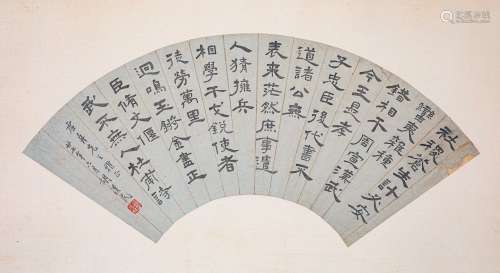 社稷蒼生計必安
蠻夷雜種
錯相干周宣漢武
今王是孝
子忠臣後代看不
道諸公無
表來茫然庶事遣
人猜擁兵
相學干戈銳使者
徒勞萬里
迴鳴玉鏘金盡正
臣脩文偃
武不無人杜甫詩